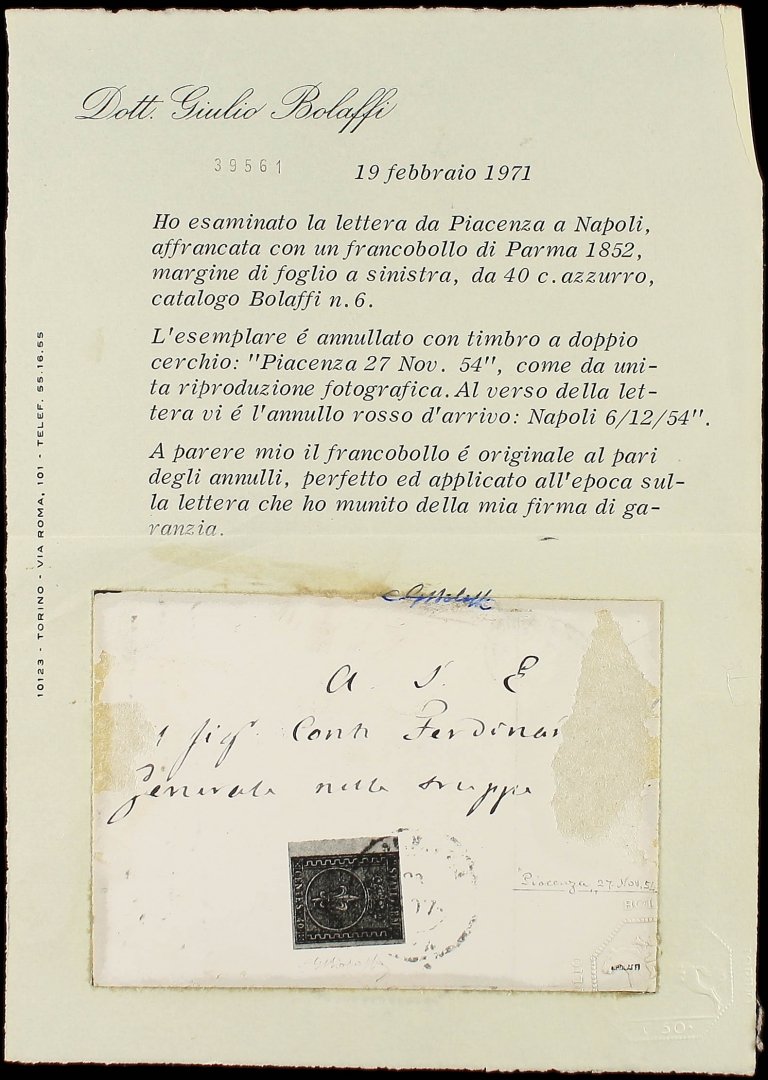 Dott. Giulio Bolaffi
39561
19 febbraio 1971
Ho esaminato la lettera da Piacenza a Napoli,
affrancata con un francobollo di Parma 1852,
margine di foglio a sinistra, da 40 c.azzurro,
catalogo Bolaffi n.6.
L'esemplare é annullato con timbro a doppio
cerchio: "Piacenza 27 Nov. 54", come da uni-
ta riproduzione fotografica.Al verso della let-
tera vi é l'annullo rosso d'arrivo: Napoli 6/12/54".
A parere mio il francobollo é originale al pari
degli annulli, perfetto ed applicato all'epoca sul-
la lettera che ho munito della mia firma di ga-
ranzia.
10123 - TORINO - VIA ROMA, 101 - TELEF. 55.16.55
A S. E
Sigr Conte Ferdinan
Generale nelle truppe
CENTES. 40
STATI PARM
Piacenza, 27 Nov. 54
BOLAFFI